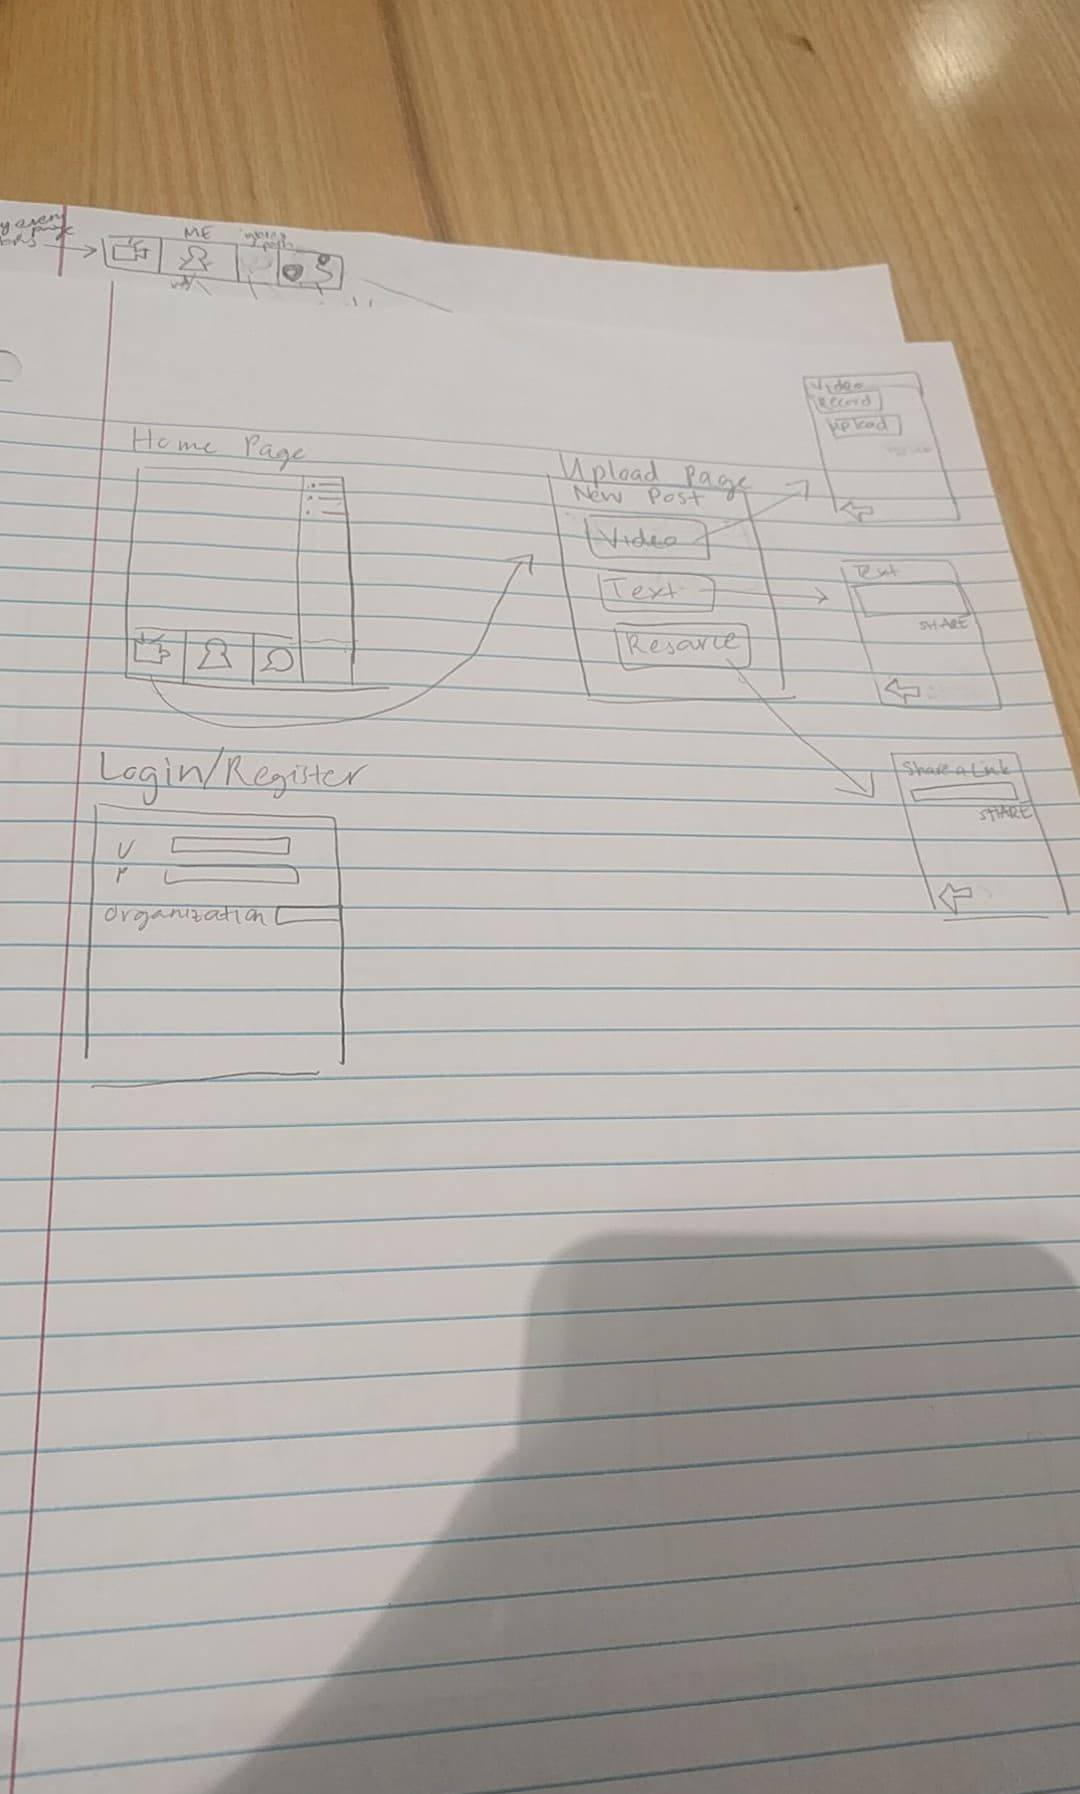 ME
Home Page
Upload Page
New Post
Video
Text
Resource
Video
Record
Upload
Text
SHARE
Share a Link
SHARE
Login/Register
U
P
organization